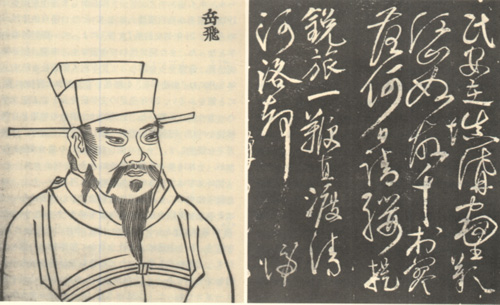 岳飛
民安在填溝壑歎
江山如故千村寥
落何日請纓提
銳旅一鞭直渡清
河洛却歸